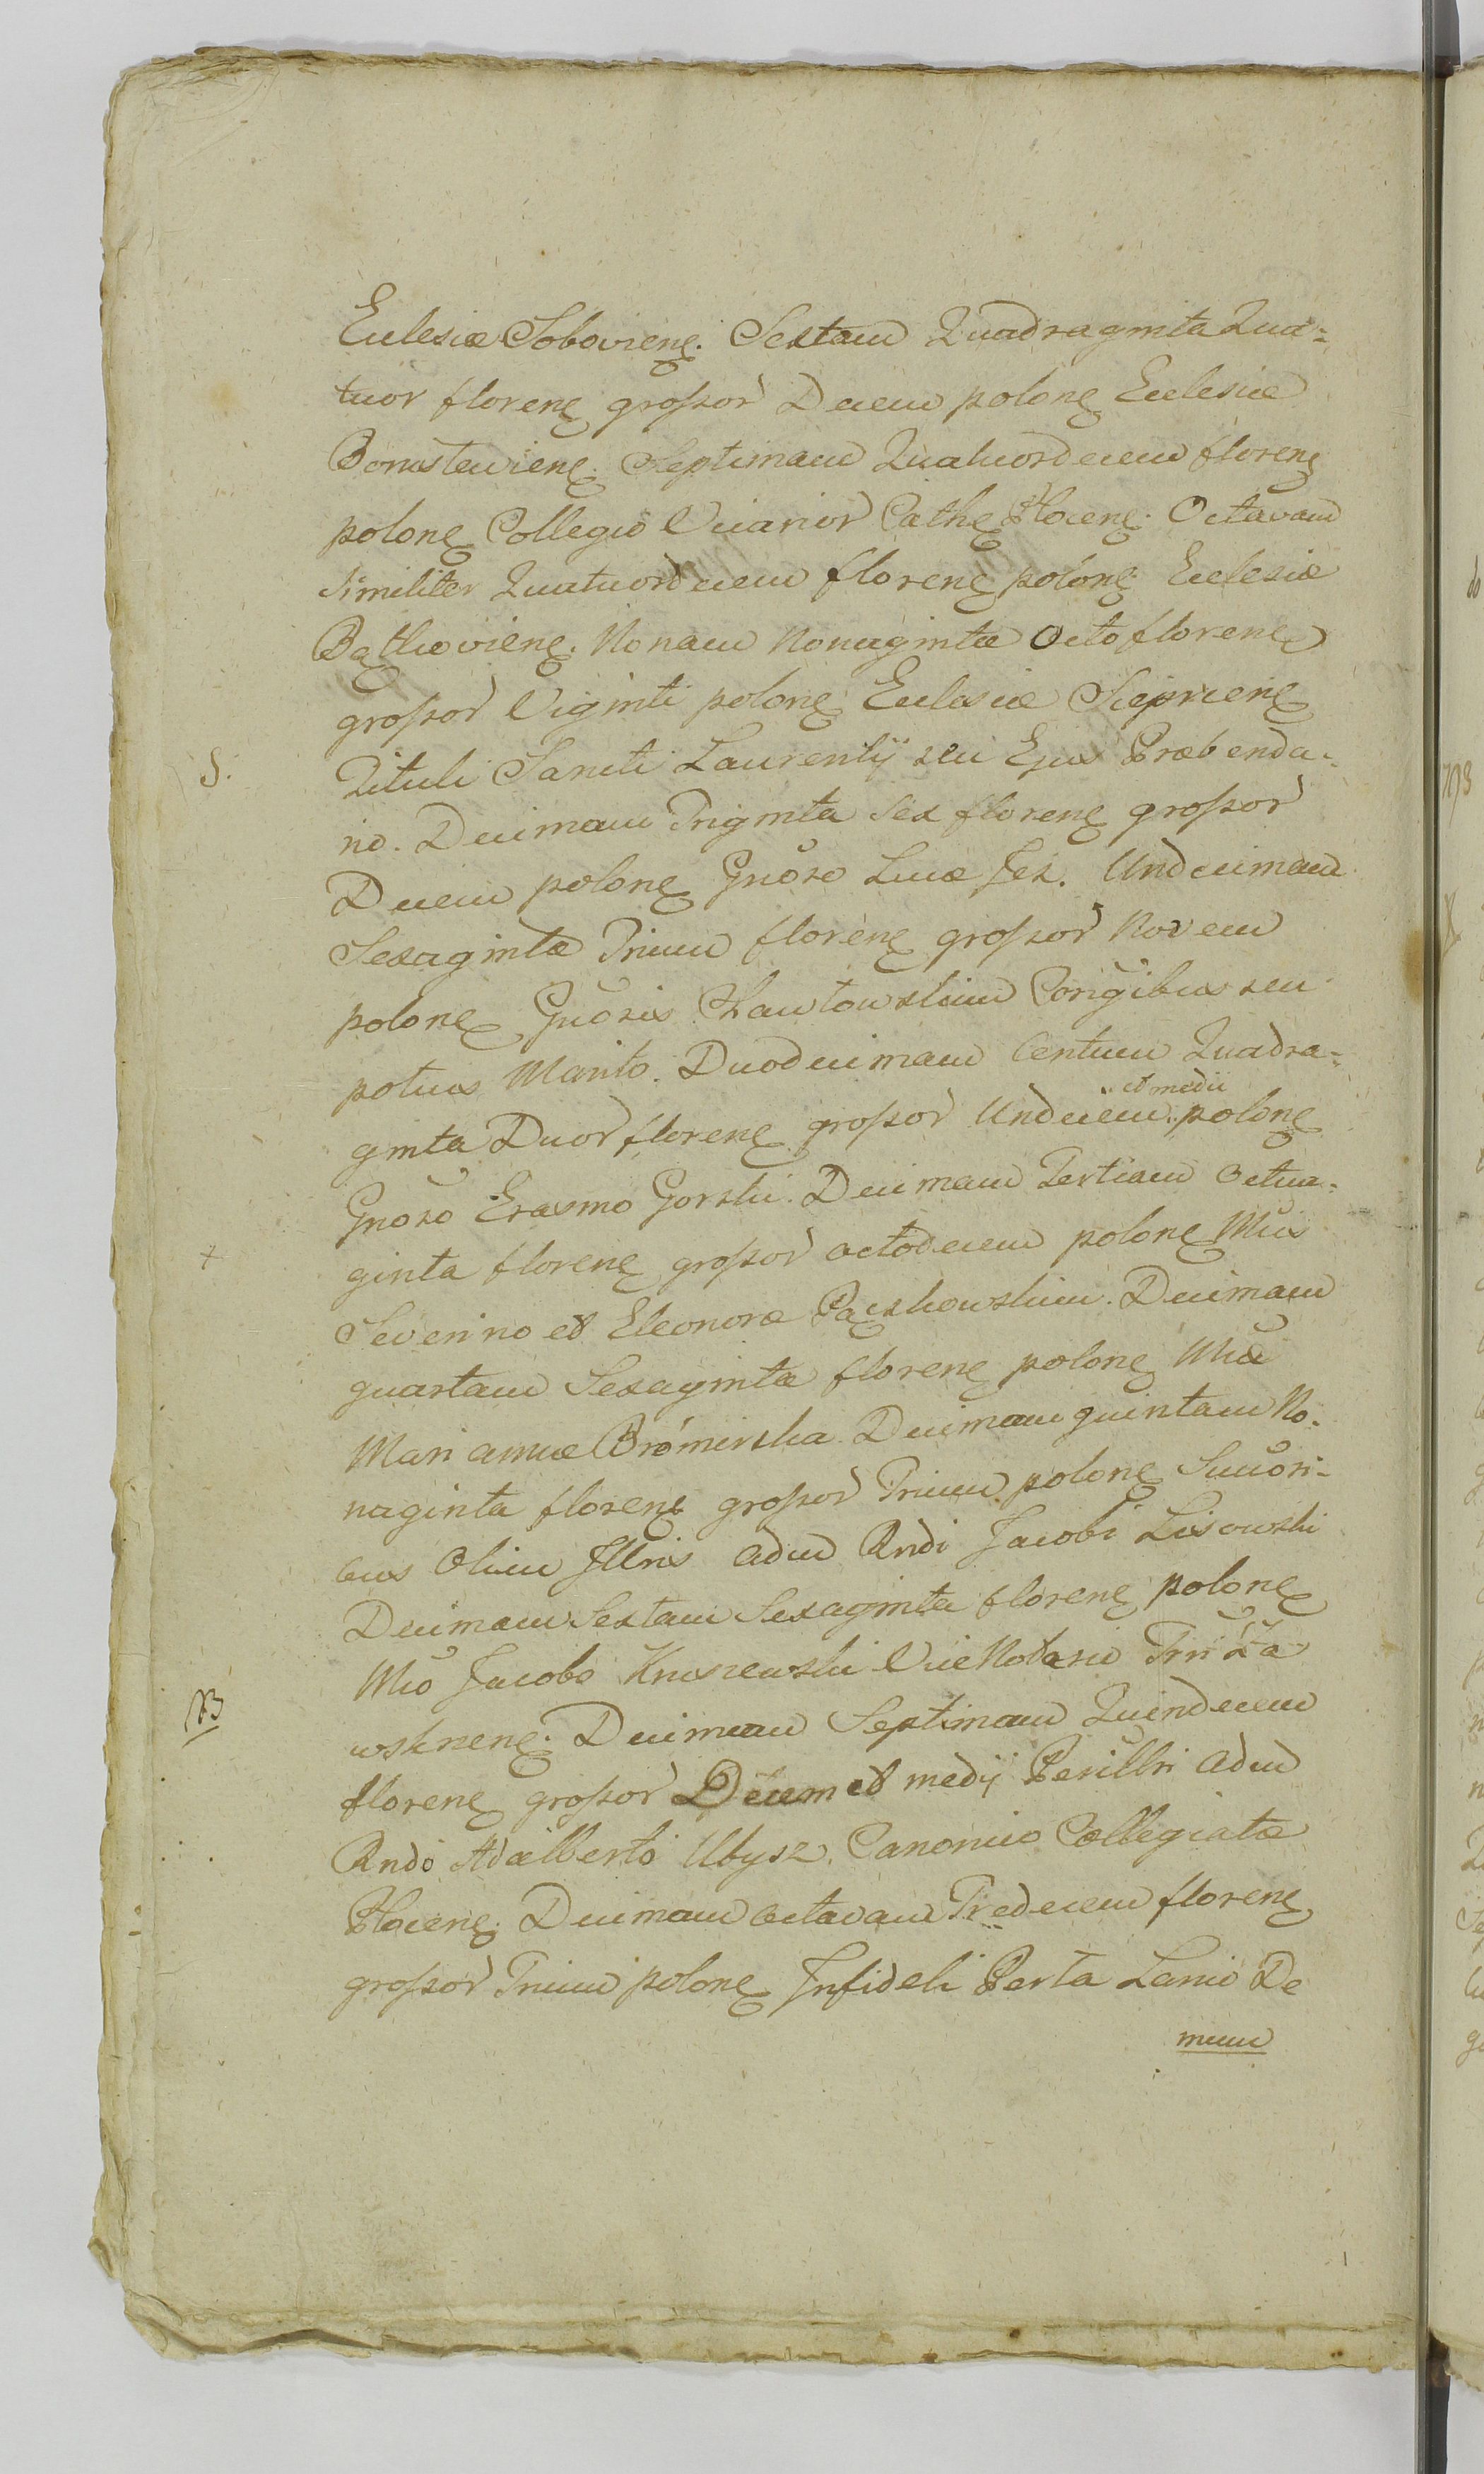 Ecclesiæ Soboviens. Sextam Quadraginta Qua=
tuor florenę grossor Decem polonę Ecclesiæ
Bonisleviens. Septimam Quatuordecem florenę
polonę Collegio Vicarior Cathę Płocenę. Octavam
Similiter Quatuordecem florenę polonę Ecclesiæ
Nonam Nonaginta Octo florenę
grossor Viginti polonę Ecclesiæ Sieprcenę
Tituli Sancti Laurentij seu Ejus Præbenda=
S.
rio. Decimam Triginta Sex florenę grossor
Decem polonę Gnoso Lucæ Jeż. Undecimam
Sexaginta Trium florenę grossor Novem
polonę Gnosis Conjgibus seu
potius Marito. Duodecimam Centum Quadra=
et medii
ginta Duor florenę grossor Undecim polonę
Gnoso Erasmo Gorski. Decimam Tertiam Octua=
+
ginta florenę grossor octodecem polonę Mcis
Severino et Eleonoræ Pączkowskim. Decimam
quartam Sexaginta florenę polonę Mcæ
Mariannæ Bromirska. Decimam quintam No=
naginta florenę grossor Trium polonę Sucćori=
bus Olim Illris adm Rndi Jacobi Lisowski
Decimam Sextam Sexaginta florenę polonę
Mco Jacobo Kruszewski Vice Notario Trri Za
NB
wskrzenę. Decimam Septimam Quindecem
florenę grossor Decem et medij Perilłri adm
Rndo Adalberto Ubysz Canonico Collegiatæ
Płocenę. Decimam octavam Tredecem florenę
grossor Trium polonę Infideli Berka Lanio De
mum